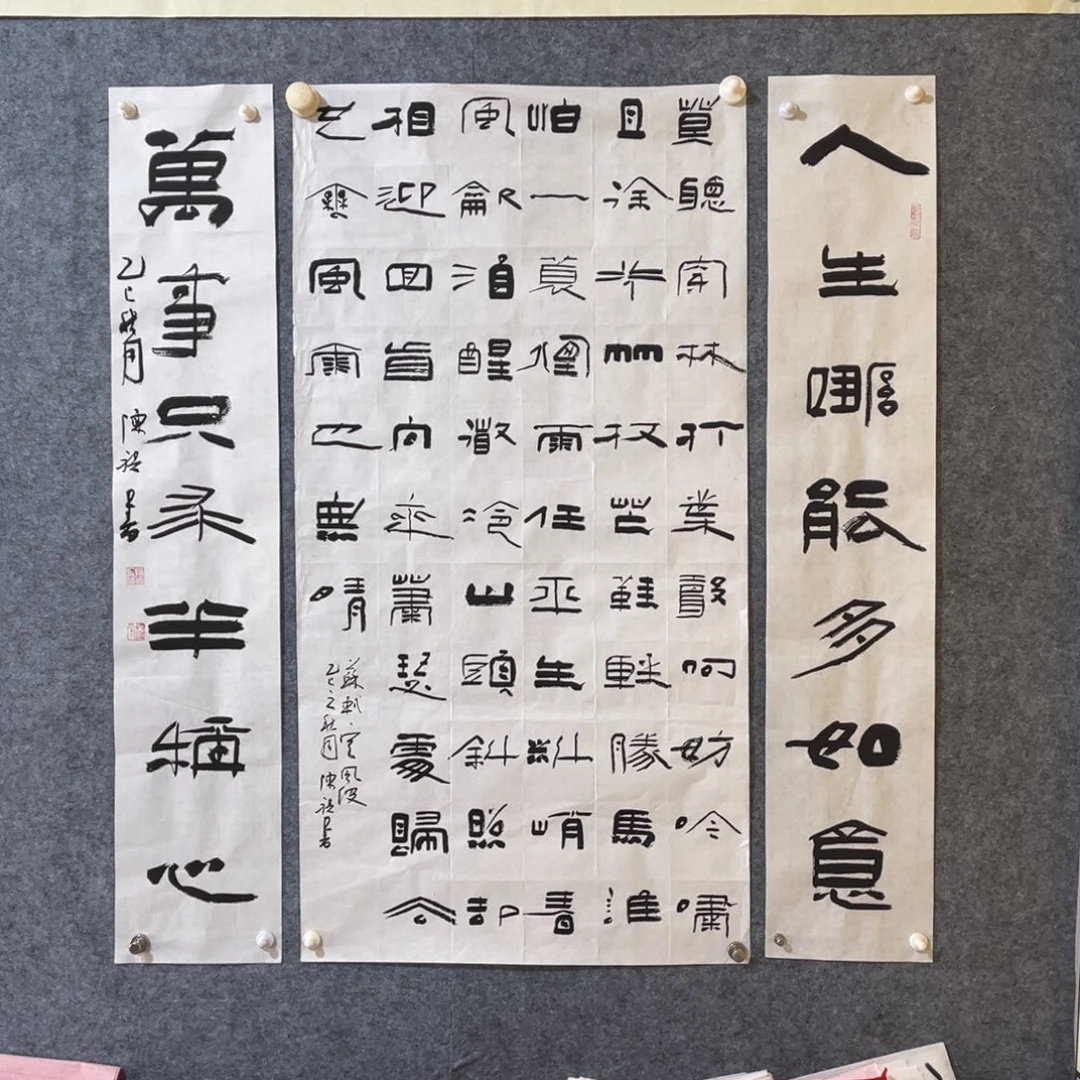 人生哪能多如意
莫聽穿林打葉聲呵妨吟嘯
且徐行竹杖芒鞋輕勝馬誰
怕一蓑煙雨任平生料峭春
風龡酒醒微冷山頭斜照却
相迎回首向來蕭瑟處歸去
也無風雨也無晴
蘇軾·定風波
乙巳之秋月 陳書
萬事只求半稱心
乙巳秋月 陳書